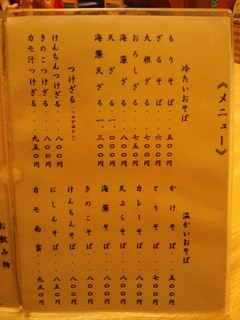 《メニュー》
冷たいおそば
もりそば・・五〇〇円
ざるそば・・六〇〇円
大根ざる・・七〇〇円
おろしざる・・七五〇円
海藻ざる・・八〇〇円
天ざる・・一、一〇〇円
海藻天ざる・一、三〇〇円
つけざる
けんちんつけざる・・八〇〇円
きのこつけざる・・八〇〇円
カモ汁つけざる・・九五〇円
温かいおそば
かけそば・・五〇〇円
とりそば・・七〇〇円
カレーそば・・八〇〇円
天ぷらそば・・八〇〇円
海藻そば・・八〇〇円
きのこそば・・八〇〇円
けんちんそば・・八〇〇円
にしんそば・・八五〇円
カモ南蛮・・九五〇円
お飲み物